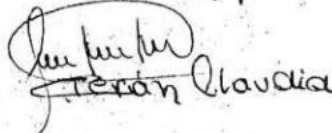 Terán Claudia